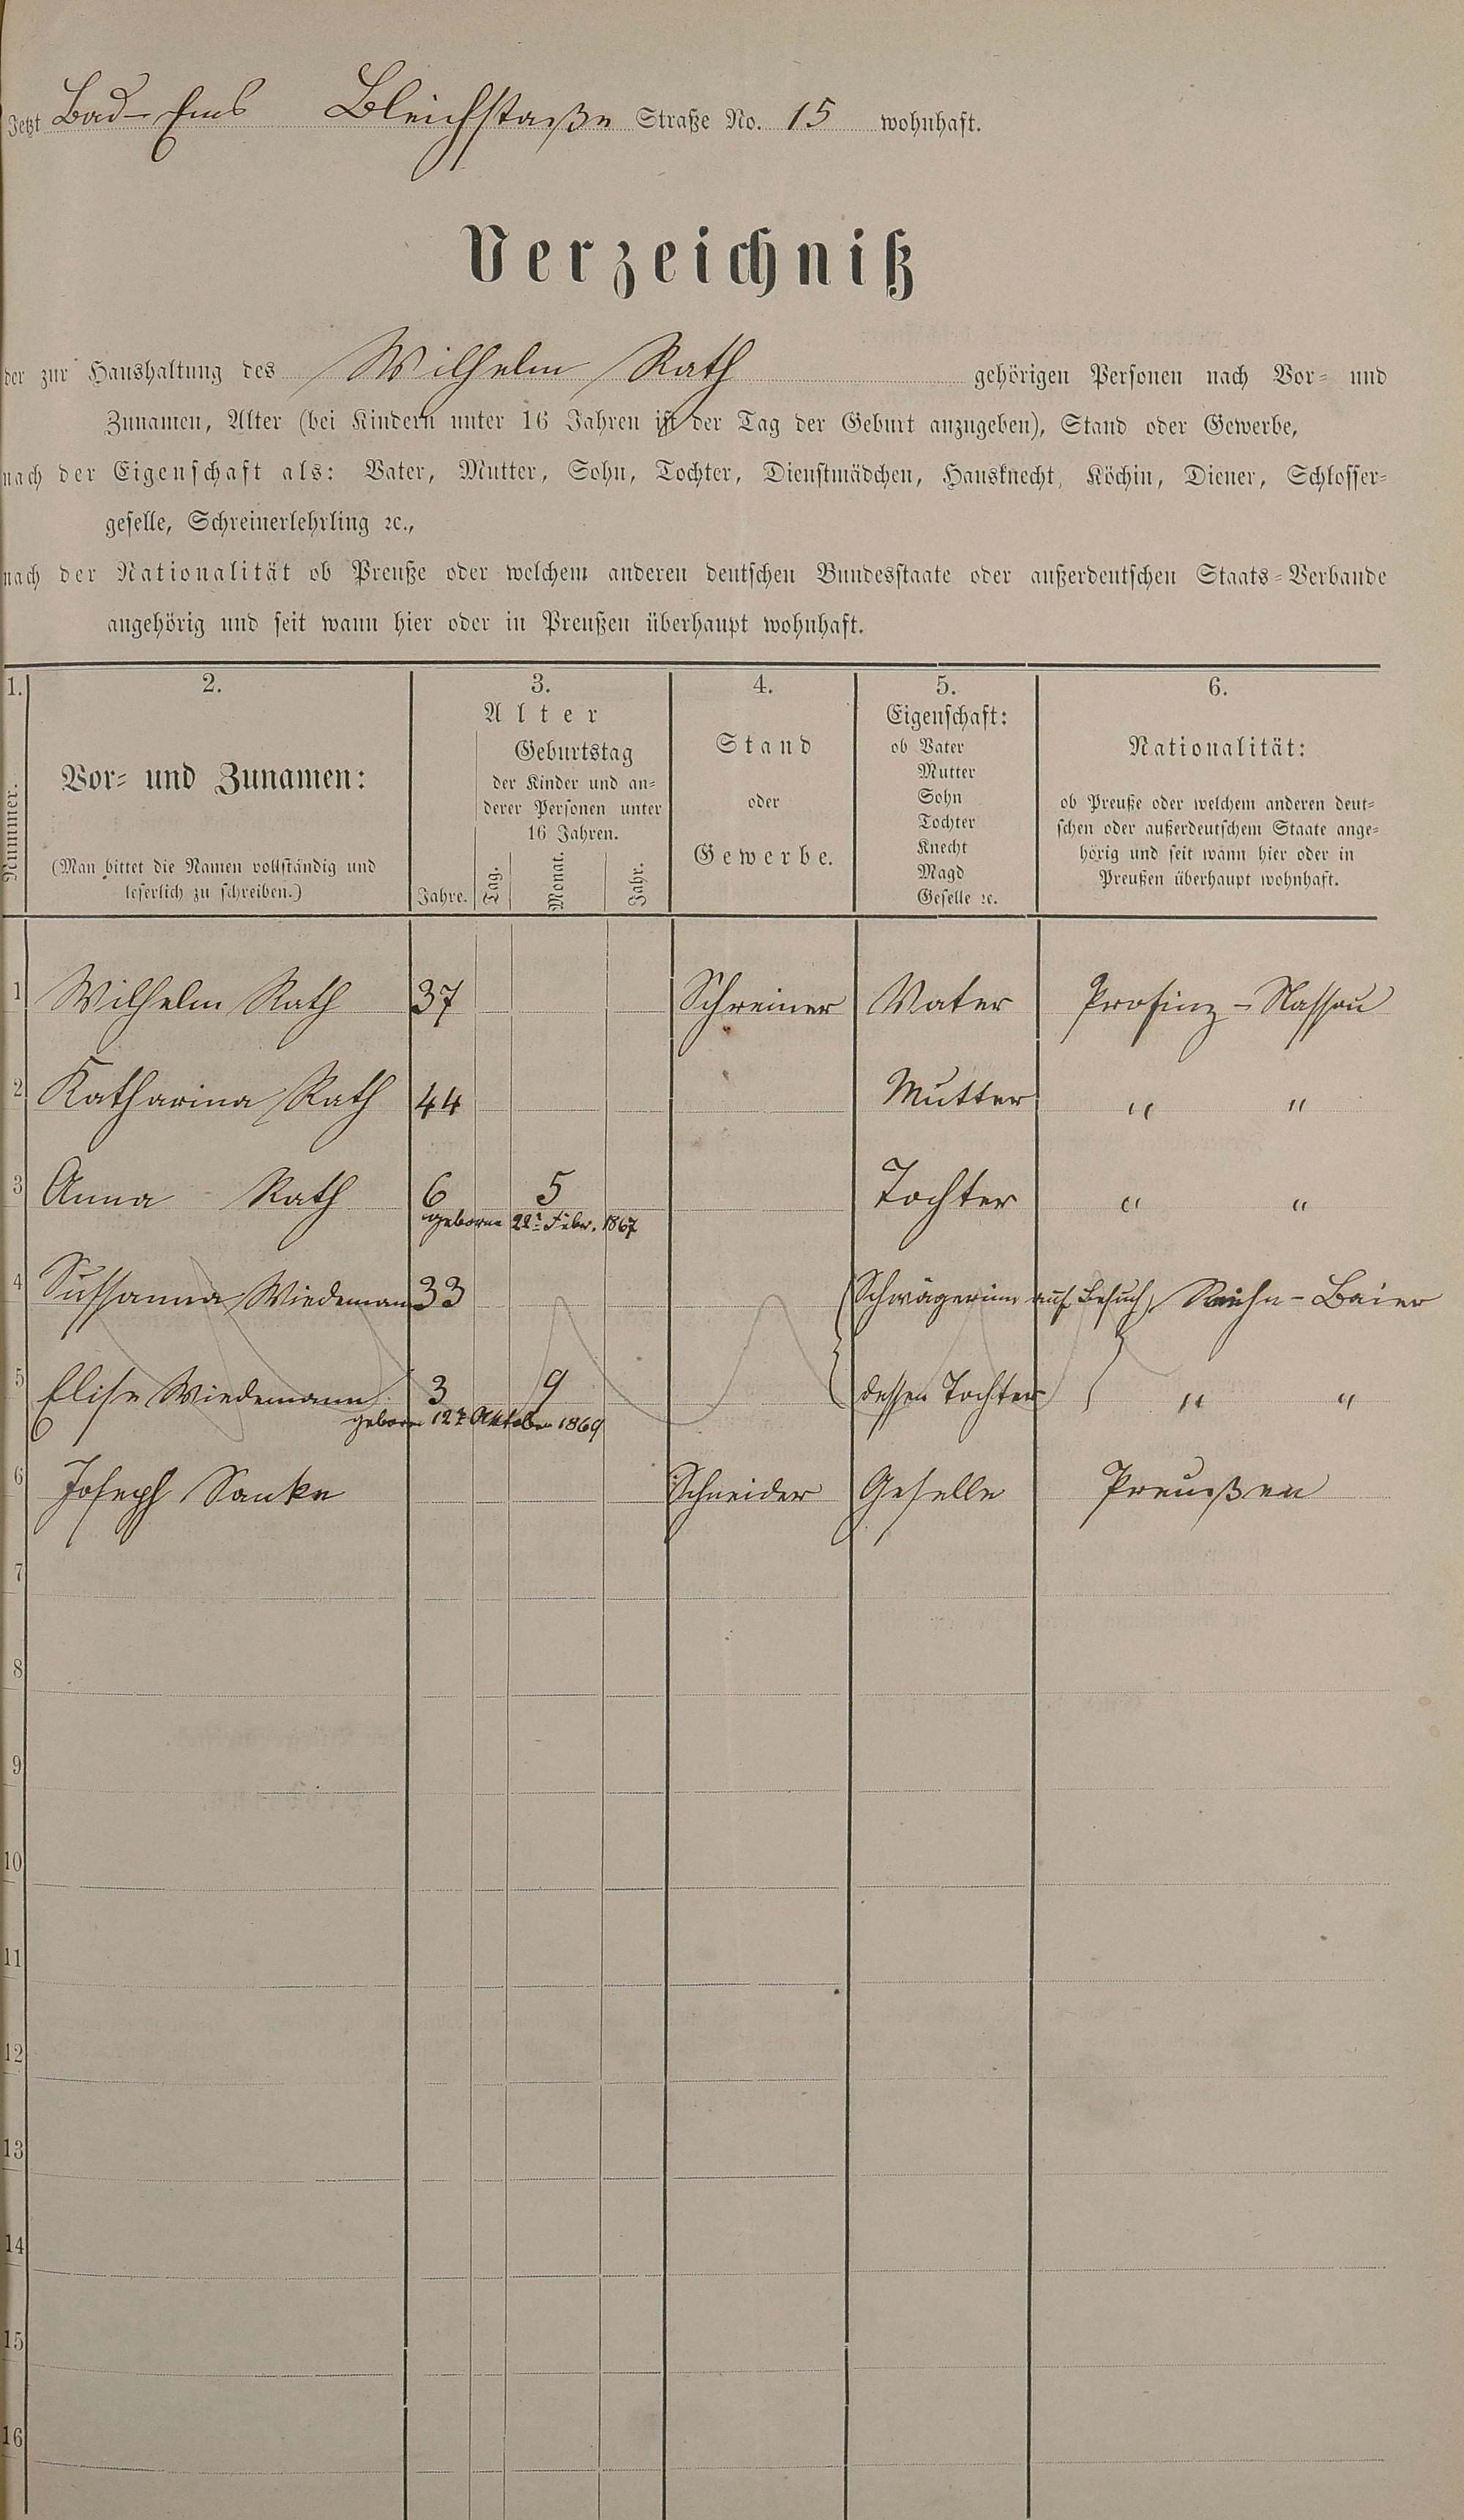 Jetzt Bad-Ems Bleichstaße Straße No. 15 wohnhaft.
Verzeichniß
der zur Haushaltung des Wilhelm Rath gehörigen Personen nach Vor- und
Zunamen, Alter (bei Kindern unter 16 Jahren ist der Tag der Geburt anzugeben), Stand oder Gewerbe,
nach der Eigenschaft als: Vater, Mutter, Sohn, Tochter, Dienstmädchen, Hausknecht, Köchin, Diener, Schlosser-
geselle, Schreinerlehrling ꝛc.,
nach der Nationalität ob Preuße oder welchem anderen deutschen Bundesstaate oder außerdeutschen Staats-Verbande
angehörig und seit wann hier oder in Preußen überhaupt wohnhaft.
1. 2. 3. 4. 5. 6.
Nummer.
Vor- und Zunamen:
(Man bittet die Namen vollständig und
leserlich zu schreiben.)
Alter
Jahre.
Geburtstag
der Kinder und an-
derer Personen unter
16 Jahren.
Tag. Monat. Jahr.
Stand
oder
Gewerbe.
Eigenschaft:
ob Vater
Mutter
Sohn
Tochter
Knecht
Magd
Geselle ꝛc.
Nationalität:
ob Preuße oder welchem anderen deut-
schen oder außerdeutschem Staate ange-
hörig und seit wann hier oder in
Preußen überhaupt wohnhaft.
1 Wilhelm Rath 37 Schreiner Vater Profinz-Nassau
2 Katharina Rath 44 Mutter " "
3 Anna Rath 6 5 Tochter " "
geborne 22t Febr. 1867
4 Sussanna Wiedeman 33 (Schwägerinn auf Besuch) Reihn-Baier
5 Elise Wiedemann 3 9 dessen Tochter " "
geborn 12t Oktober 1869
6 Joseph Sanke Schneider Geselle Preußen
7
8
9
10
11
12
13
14
15
16